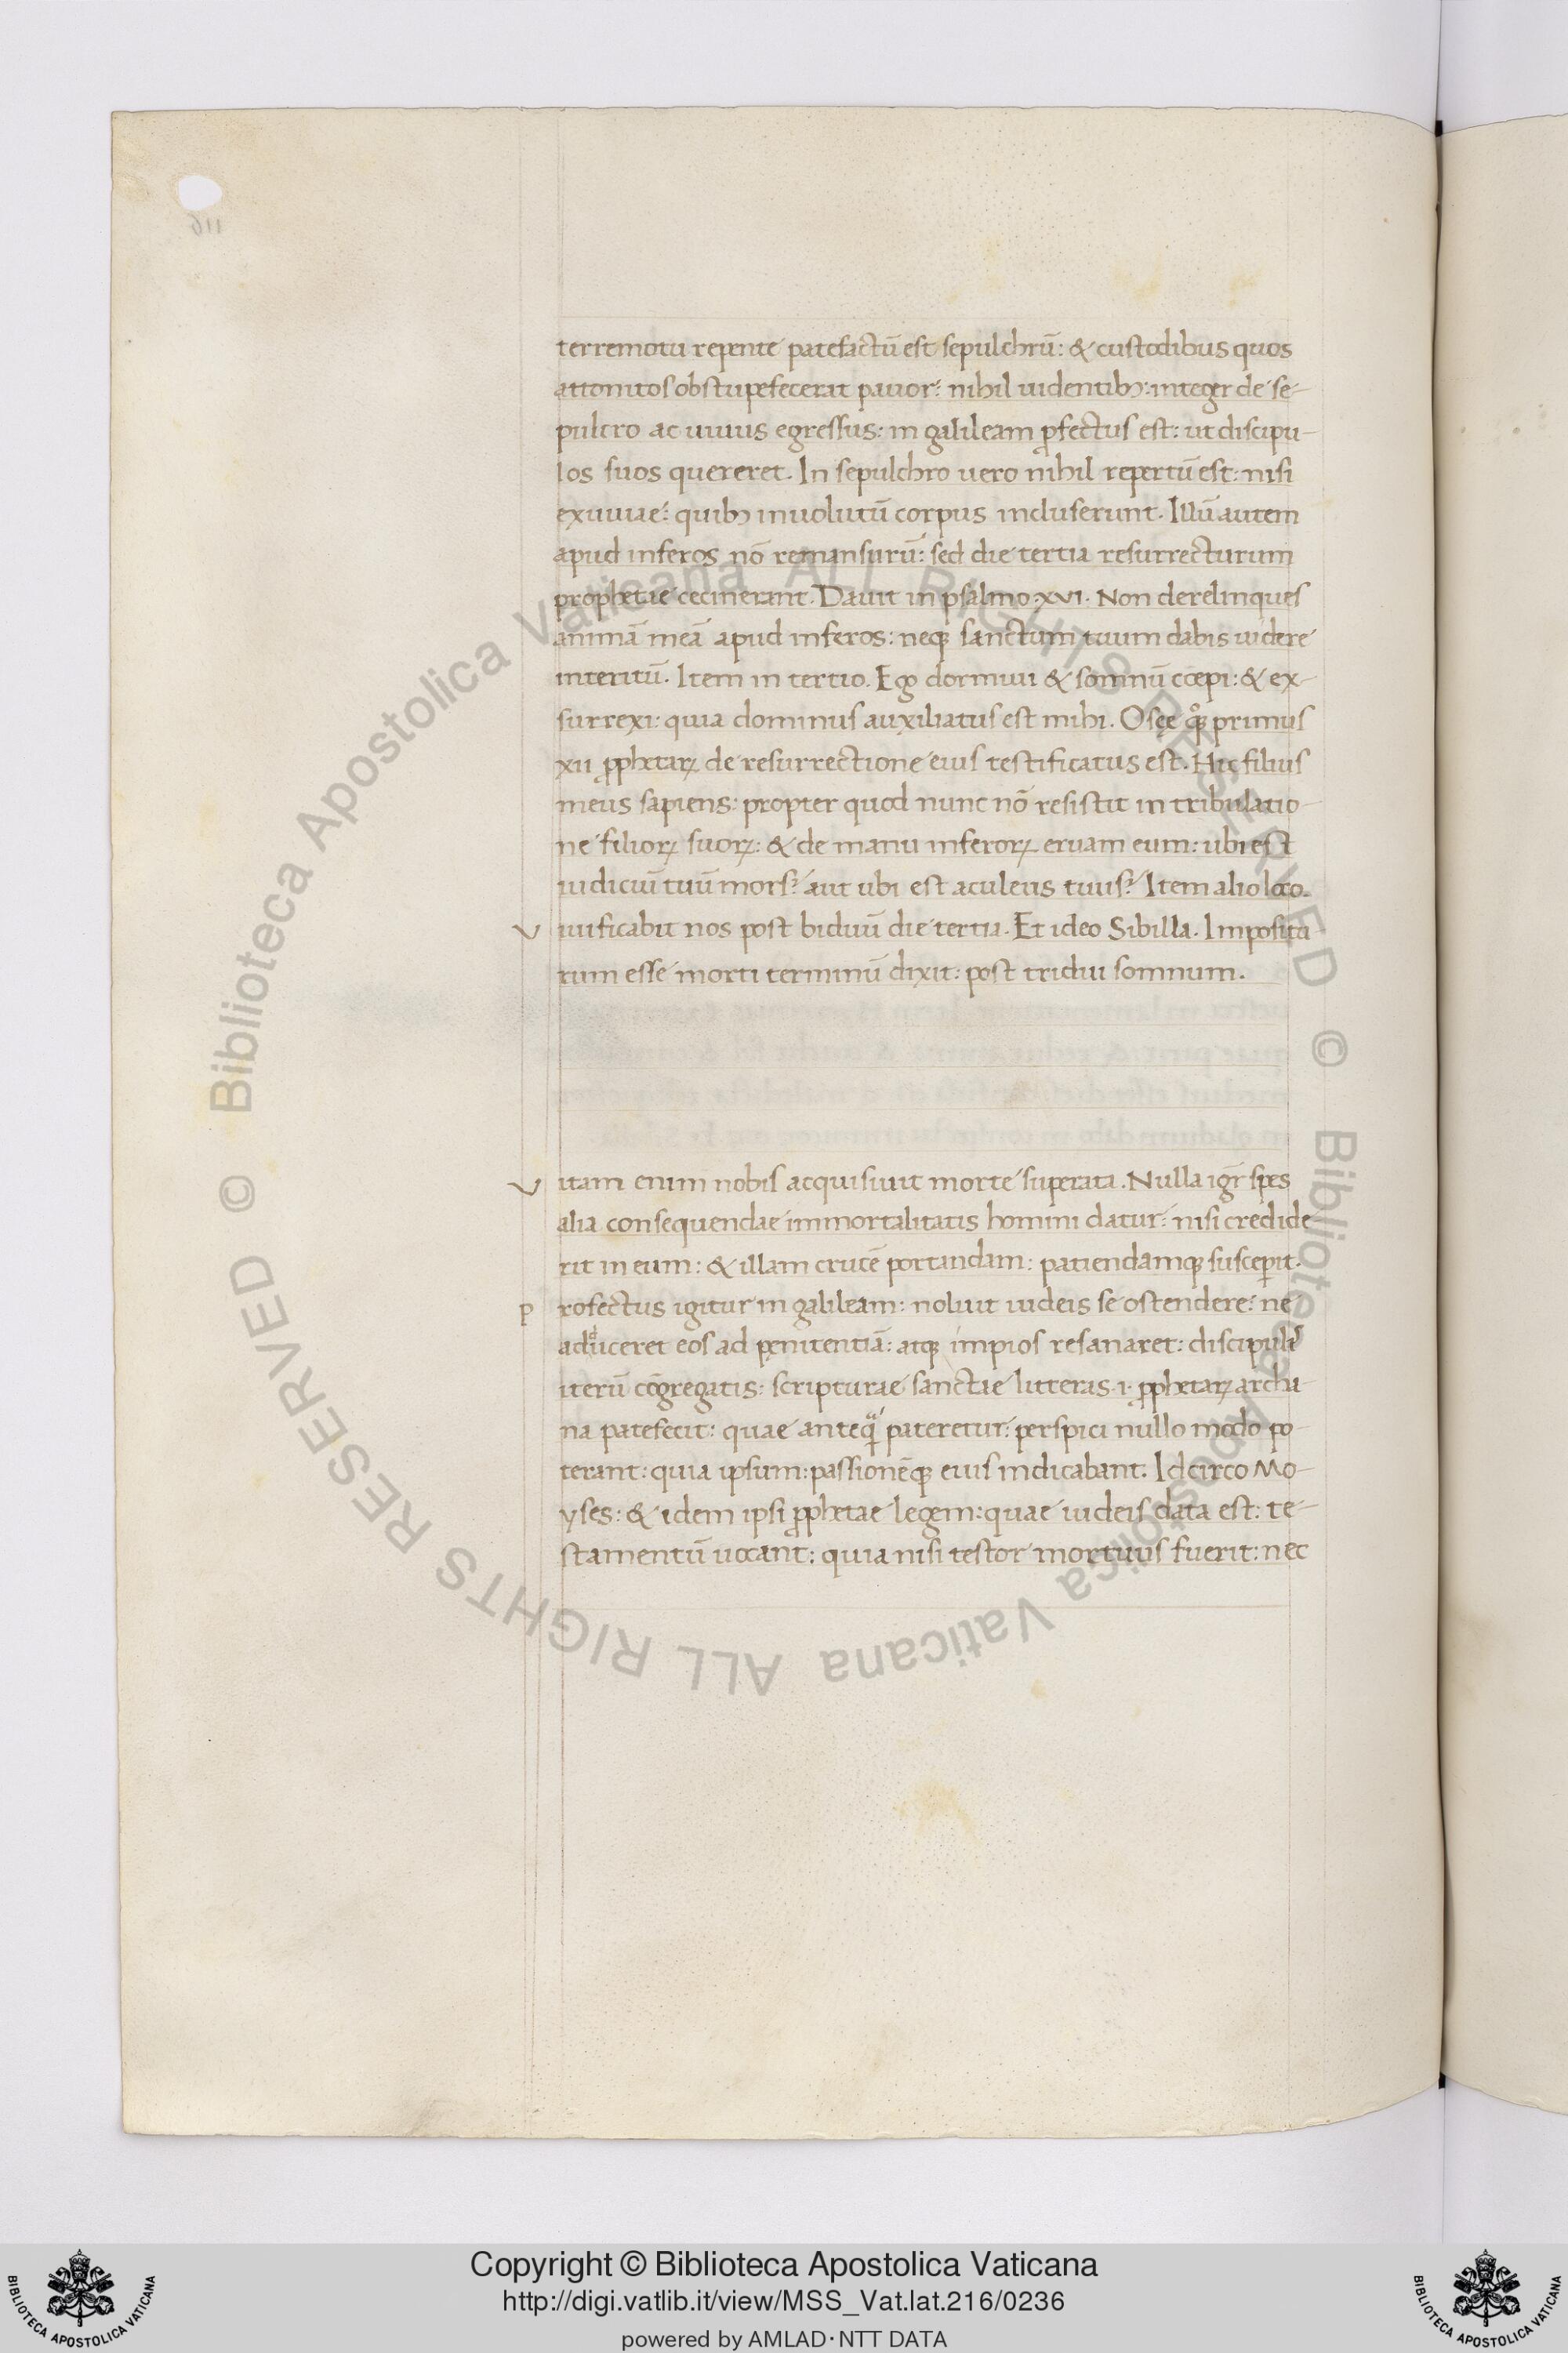 116
terremotu repente patefactū est sepulchrū: & custodibus quos
attonitos obstupefecerat pauor: nihil uidentibꝫ: integer de se-
pulcro ac uiuus egressus: in galileam ꝓfectus est: ut discipu-
los suos quereret. In sepulchro uero nihil repertū est: nisi
exuuiae: quibꝫ inuolutū corpus incluserunt. Illū autem
apud inferos nō remansurū: sed die tertia resurrecturum
prophetae cecinerant. Dauit in psalmo .xvi. Non derelinques
animā meā apud inferos: neqꝫ sanctum tuum dabis uidere
interitū. Item in tertio. Ego dormiui & somnū coepi: & ex-
surrexi: quia dominus auxiliatus est mihi. Osee quoqꝫ primus
xii ꝓphetaꝝ de resurrectione eius testificatus est. Hic filius
meus sapiens: propter quod nunc nō resistit in tribulatio-
ne filioꝝ suoꝝ: & de manu inferoꝝ eruam eum: ubi est
iudiciū tuū mors? aut ubi est aculeus tuus? Item alio loco.
V iuificabit nos post biduū die tertia. Et ideo Sibilla. Imposita
rum esse morti terminū dixit: post tridui somnum.
V itam enim nobis acquisiuit morte superata. Nulla igr̄ spes
alia consequendae immortalitatis homini datur: nisi credide
rit in eum: & illam crucē portandam: patiendamqꝫ susceperit.
P rofectus igitur in galileam: noluit iudeis se ostendere: ne
adduceret eos ad penitentiā: atqꝫ impios resanaret: discipulis
iterū cōgregatis: scripturae sanctae litteras .i. ꝓphetaꝝ archa
na patefecit: quae anteqͣ pateretur: perspici nullo modo po-
terant: quia ipsum: passionēqꝫ eius indicabant. Idcirco Mo-
yses: & idem ipsi ꝓphetae legem: quae iudeis data est: te-
stamentū uocant: quia nisi testor mortuus fuerit: nec
© Biblioteca Apostolica Vaticana ALL RIGHTS RESERVED © Biblioteca Apostolica Vaticana ALL RIGHTS RESERVED
Copyright © Biblioteca Apostolica Vaticana
http://digi.vatlib.it/view/MSS_Vat.lat.216/0236
powered by AMLAD·NTT DATA
BIBLIOTECA APOSTOLICA VATICANA
BIBLIOTECA APOSTOLICA VATICANA